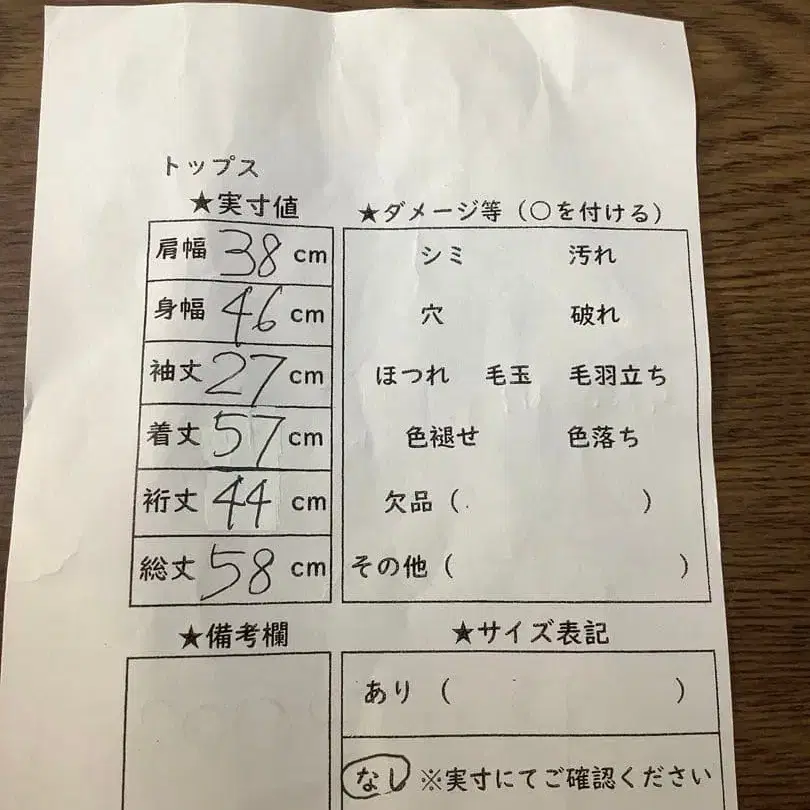 トップス
★実寸値
肩幅 38 cm
身幅 46 cm
袖丈 27 cm
着丈 57 cm
裄丈 44 cm
総丈 58 cm
★ダメージ等（○を付ける）
シミ 汚れ
穴 破れ
ほつれ 毛玉 毛羽立ち
色褪せ 色落ち
欠品（ ）
その他（ ）
★備考欄
★サイズ表記
あり（ ）
なし ※実寸にてご確認ください